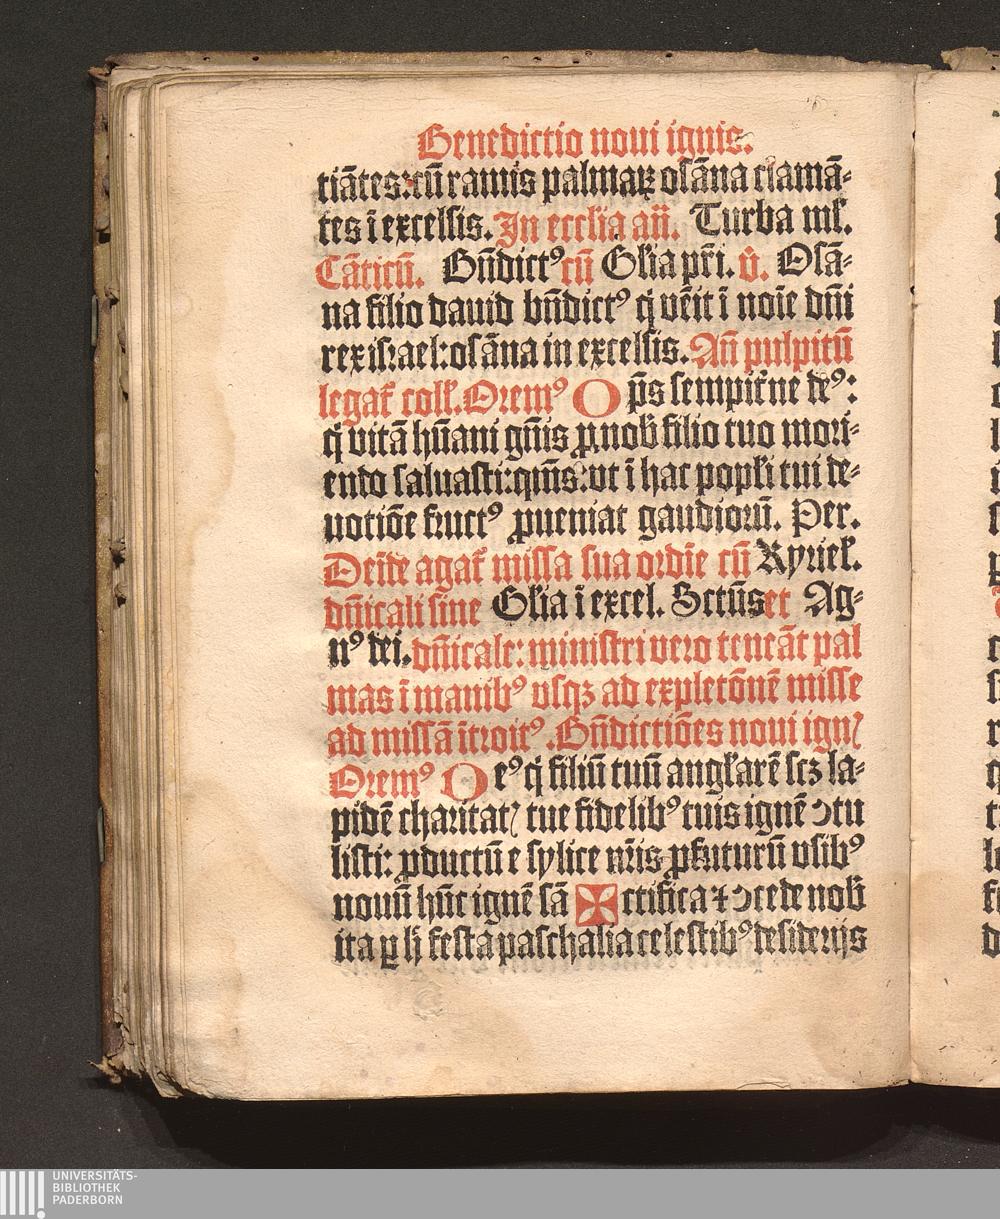 Benedictio noui ignis.
tiātes: cū ramis palmaꝝ osāna clamā-
tes ī excelsis. In ecclīa añ. Turba ml̄.
Cāticū. Bn̄dictꝰ cū Gl̄ia pr̄i. v̄. Osā-
na filio dauid bn̄dictꝰ q̇ vēit ī noīe dn̄i
rex israel: osāna in excelsis. Añ pulpitū
legat̄ coll̄. Oremꝰ O p̄s sempit̄ne deꝰ:
q̇ vitā hūani gn̄is ꝓ nob̄ filio tuo mori-
endo saluasti: qm̄s: vt ī hac popl̄i tui de-
uotiōe fructꝰ ꝓueniat gaudiorū. Per.
Deīde agat̄ missa sua ordīe cū Kyriel̄.
dn̄icali sine Gl̄ia ī excel. Sctūs et Ag-
nꝰ dei. dn̄icale: ministri vero teneāt pal
mas ī manibꝰ vsqꝫ ad expletōnē misse
ad missā ītroitꝰ. Bn̄dictiōes noui ignꝭ
Oremꝰ Deꝰ q̇ filiū tuū angl̄arē scꝫ la-
pidē charitatꝭ tue fidelibꝰ tuis ignē ↄtu
listi: ꝓductū e sylice nr̄is ꝓfuturū vsibꝰ
nouū hūc ignē sā ✠ ctifica ⁊ ↄcede nob̄
ita ꝑ h̄ festa paschalia celestibꝰ desiderijs
UNIVERSITÄTS-
BIBLIOTHEK
PADERBORN